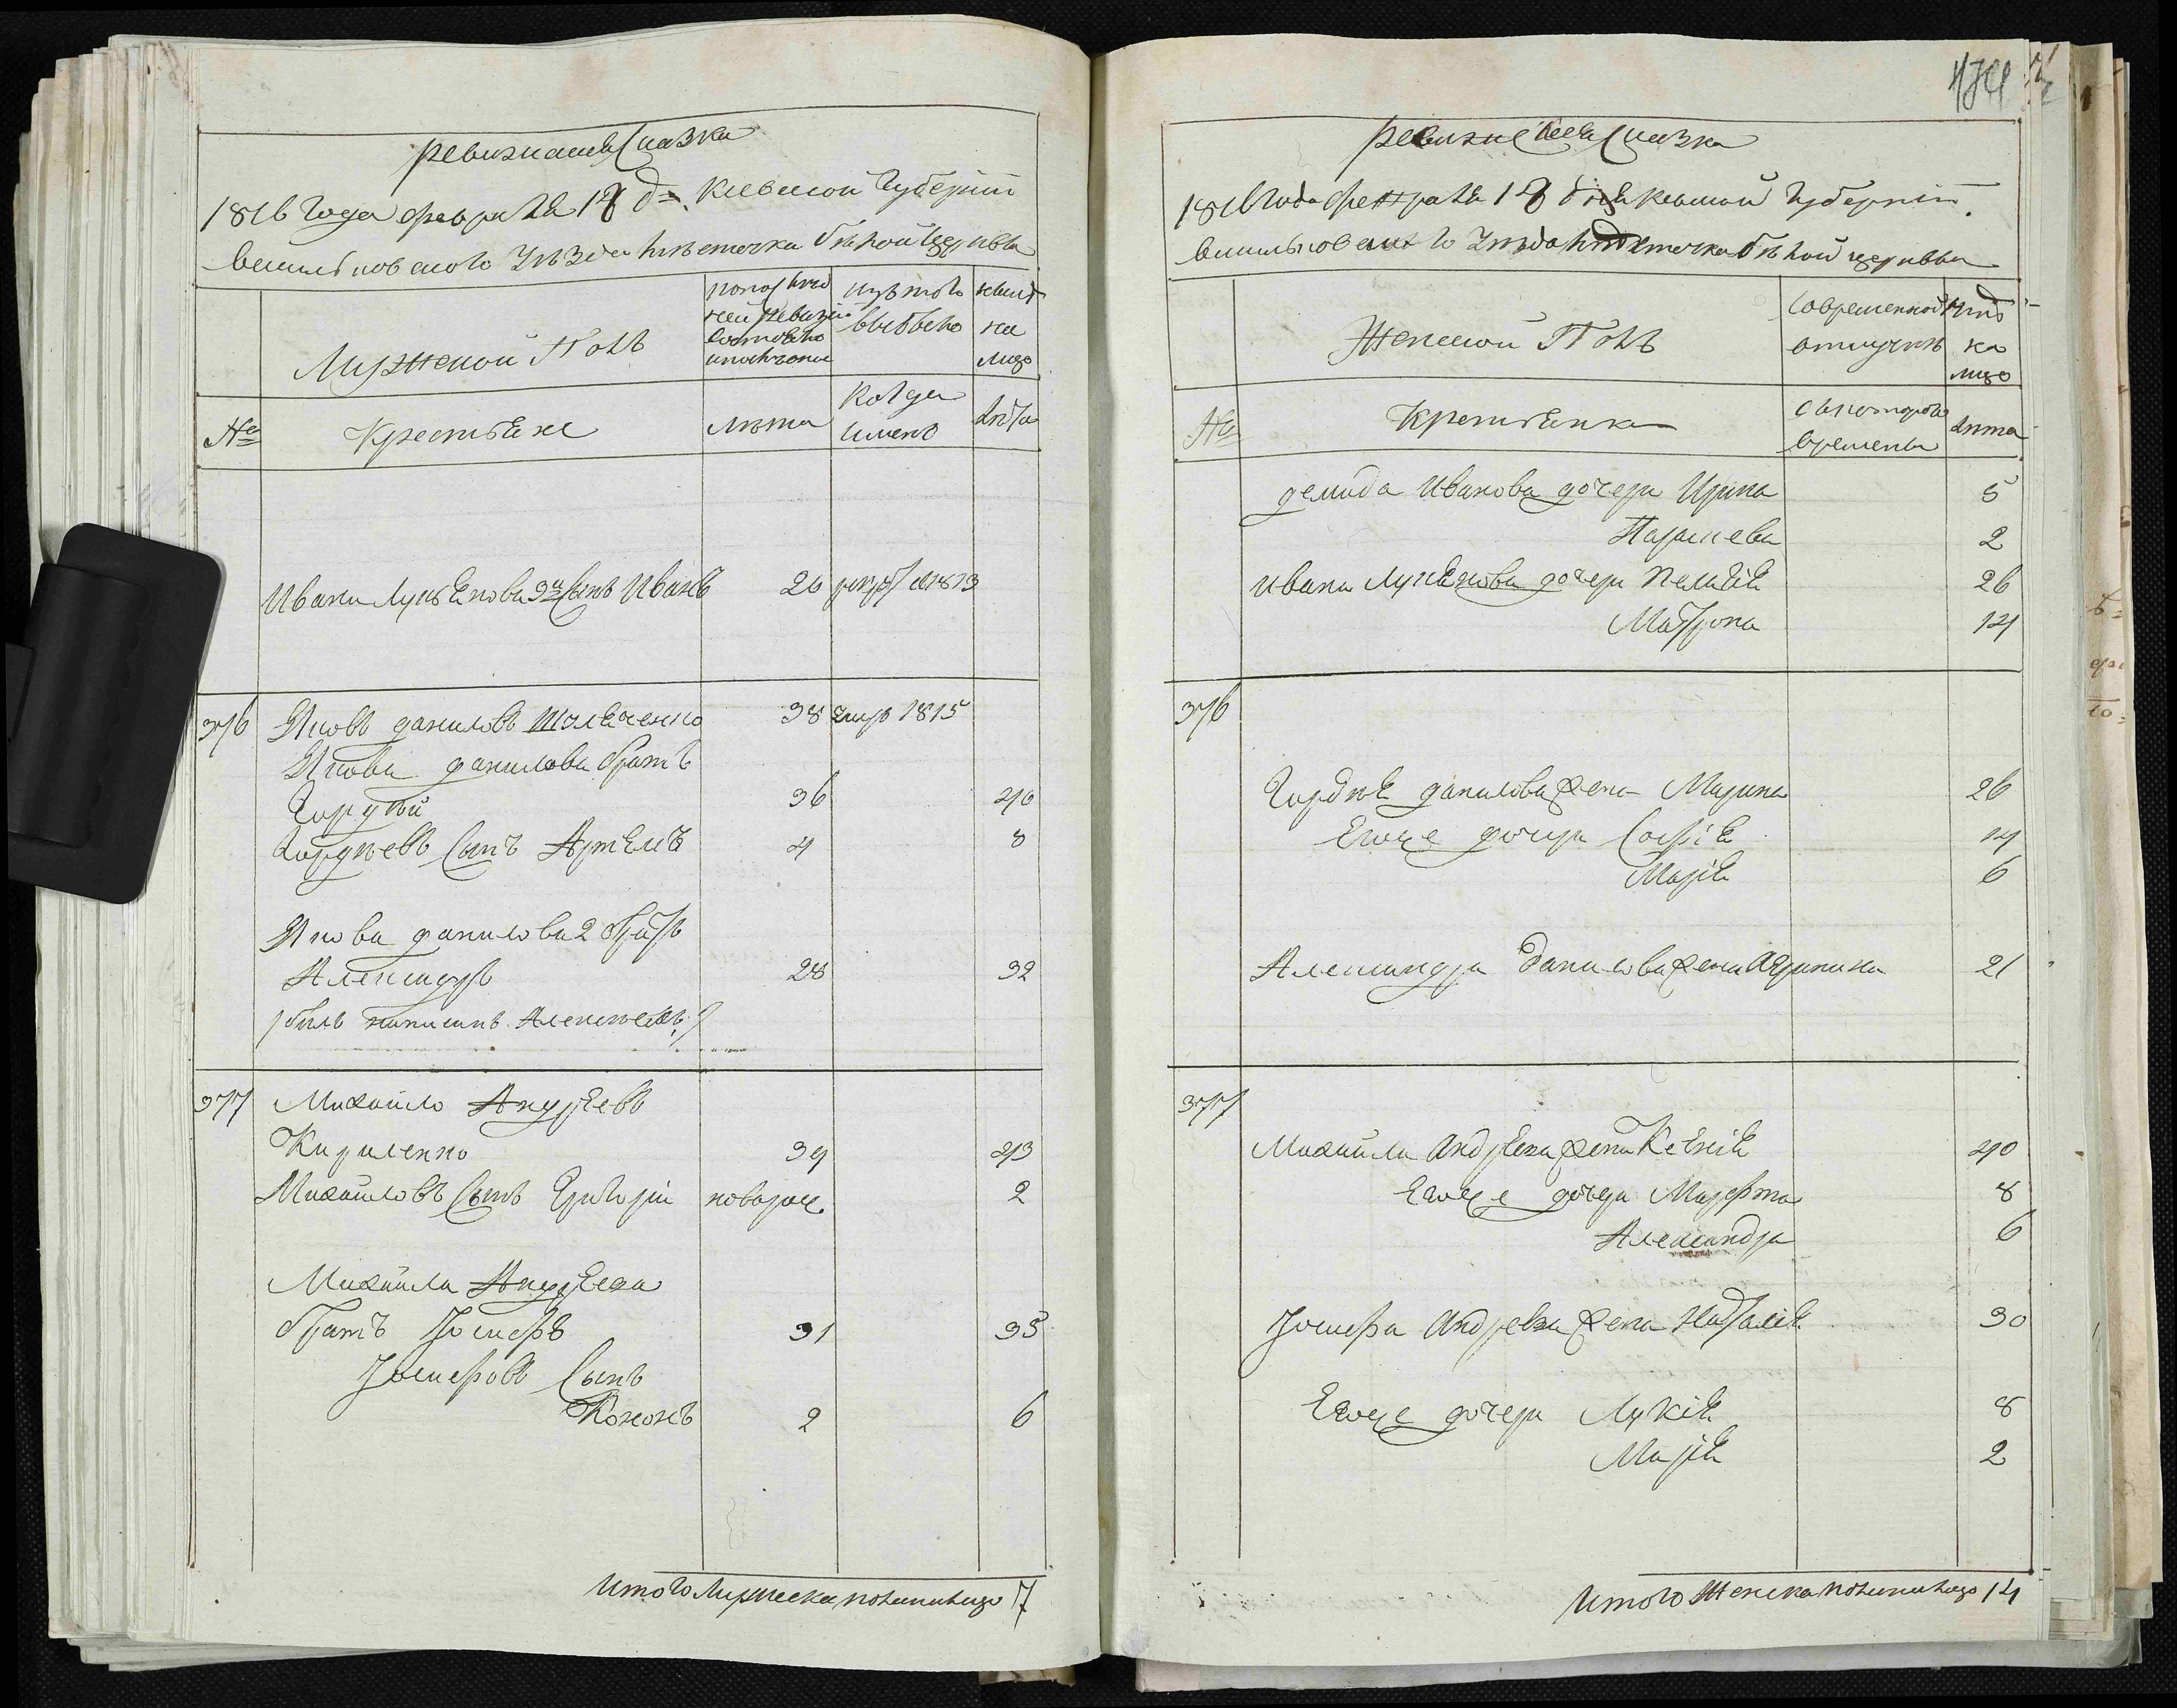 ревизская Сказка
1816 Года февраля 18 д= Киевской Губернии
Васильковского Уезда местечка белой церквы
Мужеской Полъ
по последней ревизии состояло и после того прибыло
изъ того выбыло
ныне на лицо
№
Крестьяне
лета
Когда имено
лета
Ивана Лукьянова 3й Сынъ Иванъ 20 рекру: в 1813
376 Яковъ даниловъ 38 умер 1815
Якова данилова братъ
Гордей 36 40
Гордеевъ Сынъ Артемъ 4 8
Якова данилова 2 братъ
Александръ 28 32
/былъ написанъ Алексеемъ/
377 Михайло Андреевъ
Кириленко 39 43
Михайловъ Сынъ Григорий новорож. 2
Михайла Андреева
братъ Иосифъ 31 35
Иосифовъ Сынъ
Кононъ 2 6
Итого Мужеска пола на лицо 7
ревизская Сказка
1816 года февраля 18 дня Киевской Губернии
Васильковского Уезда местечка белой церквы
Женской Полъ
Во временной отлучке
ныне на лицо
№
Крестьянка
съ которого времени
лета
демида Иванова дочери Ирина 5
Параскева 2
Ивана Лукьянова дочери Пелагия 26
Матрона 14
376
Гордея данилова жена Марина 26
Его же дочери Софія 14
Марія 6
Александра Данилова жена Агрипина 21
377
Михайла Андреева жена Ксенія 40
Его же дочери Марфта 8
Александра 6
Иосифа Андреева жена Наталія 30
Его же дочери Лукія 8
Марія 2
Итого Женска пола на лицо 14